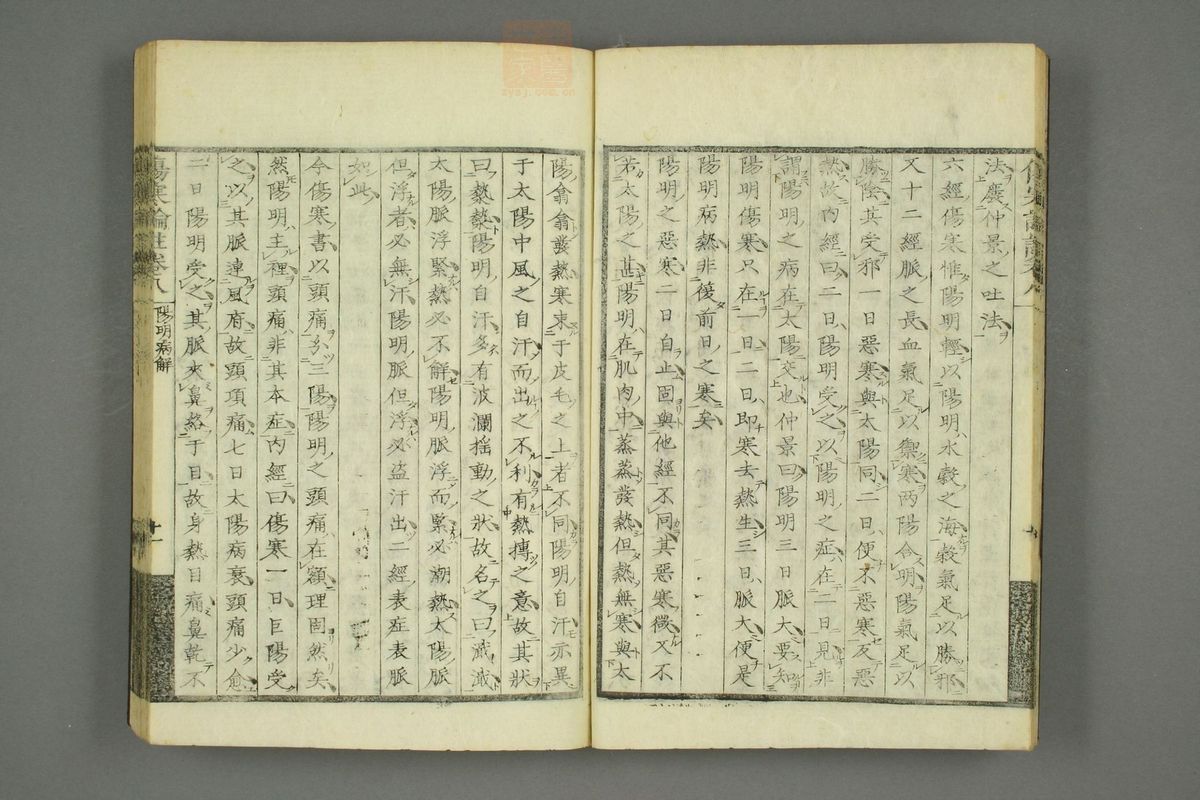 法廢仲景之吐法
六經傷寒惟陽明輕以陽明水穀之海穀氣足以勝邪
又十二經脈之長血氣足以禦寒兩陽合明陽氣足以
勝陰其受邪一日惡寒與太陽同二日便不惡寒反惡
熱故內經曰二日陽明受之以陽明之症在二日見非
謂陽明之病在太陽交也仲景曰陽明三日脈大要知
陽明傷寒只在一日二日即寒去熱生三日脈大便是
陽明病熱非復前日之寒矣
陽明之惡寒二日自止固與他經不同其惡寒微又不
若太陽之甚陽明在肌肉中蒸蒸發熱但熱無寒與太
陽翕翕發熱寒束于皮毛之上者不同陽明自汗亦異
于太陽中風之自汗而出之不利有熱摶之意故其狀
曰漐漐陽明自汗多有波瀾搖動之狀故名之曰濈濈
太陽脈浮緊熱必不解陽明脈浮而緊必潮熱太陽脈
但浮者必無汗陽明脈但浮必盜汗出二經表症表脈
如此
今傷寒書以頭痛分三陽陽明之頭痛在額理固然矣
然陽明主裡頭痛非其本症內經曰傷寒一日巨陽受
之以其脈連風府故頭項痛七日太陽病衰頭痛少愈
二日陽明受之其脈夾鼻絡于目故身熱目痛鼻乾不
傷寒論註卷八
陽明病解
十一